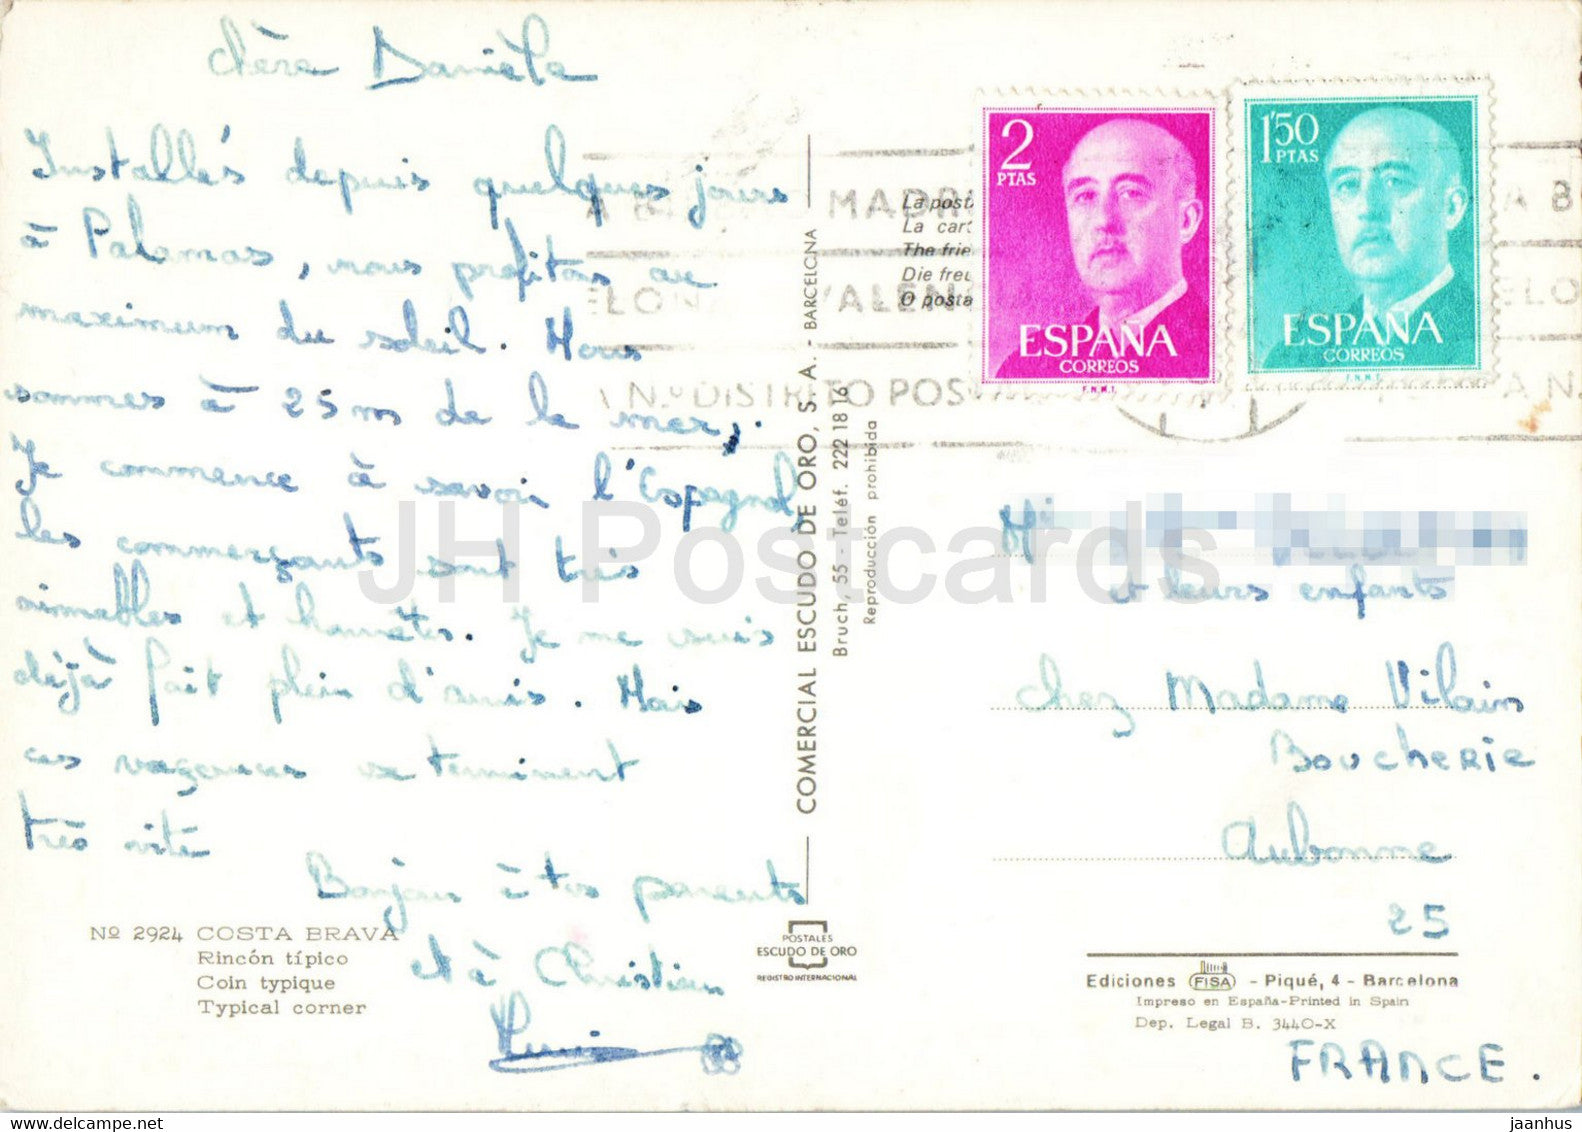 chère Danièle
Installés depuis quelques jours
à Palamas, nous profitons au
maximum du soleil. Nous
sommes à 25m de la mer,.
Je commence à savoir l'Espagnol,
les commerçants sont très
aimables et honnêtes. Je me suis
déjà fait plein d'amis. Mais
ces vacances se terminent
très vite
Bonjour à tes parents
et à Christian
Nº 2924 COSTA BRAVA
Rincón típico
Coin typique
Typical corner
COMERCIAL ESCUDO DE ORO, S. A. - BARCELONA
Bruch, 55 - Teléf. 222 18 16
Reproducción prohibida
POSTALES
ESCUDO DE ORO
REGISTRO INTERNACIONAL
2
PTAS
ESPAÑA
CORREOS
F.N.M.T.
1'50
PTAS
ESPAÑA
CORREOS
F.N.M.T.
La posta
La cart
The frie
Die freu
O posta
MADRI
VALENC
DISTRITO POS
et leurs enfants
chez Madame Vilain
BOUCHERIE
Aubonne
25
Ediciones FISA - Piqué, 4 - Barcelona
Impreso en España-Printed in Spain
Dep. Legal B. 3440-X
FRANCE.
JH Postcards
jaanhus